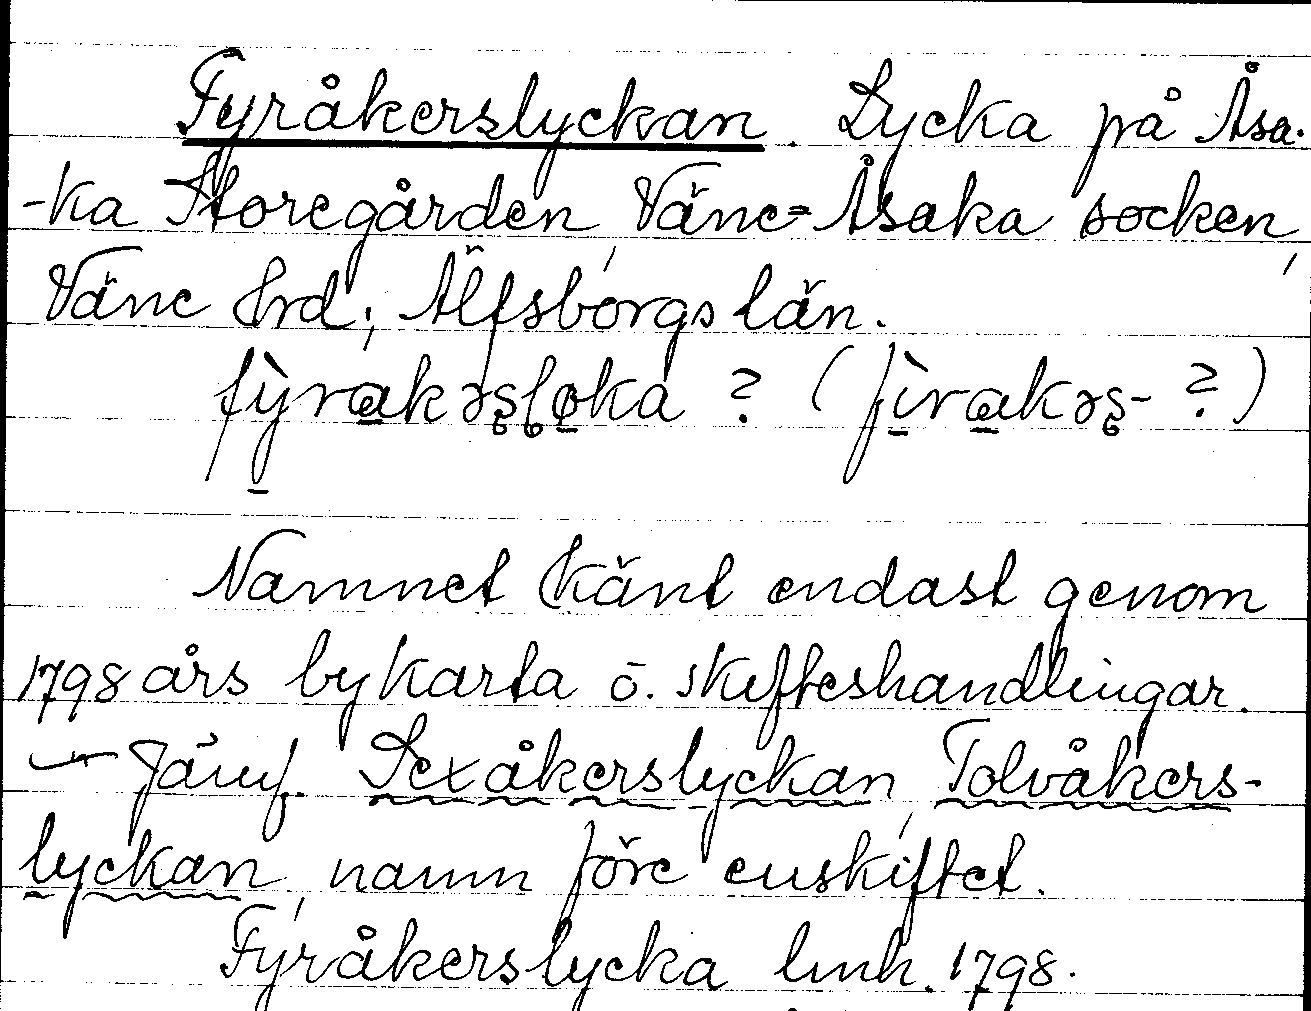 Fyråkerslyckan. Lycka på Åsa-
-ka Storegården, Väne-Åsaka socken,
Väne Hrd; Älfsborgs län.
fỳrakəsloka ? (fìrakəs- ?)
Namnet känt endast genom
1798 års bykarta o. skifteshandlingar.
— Jämf. Sexåkerslyckan, Tolvåkers-
lyckan, namn före enskiftet.
Fyråkerslycka lmh. 1798.